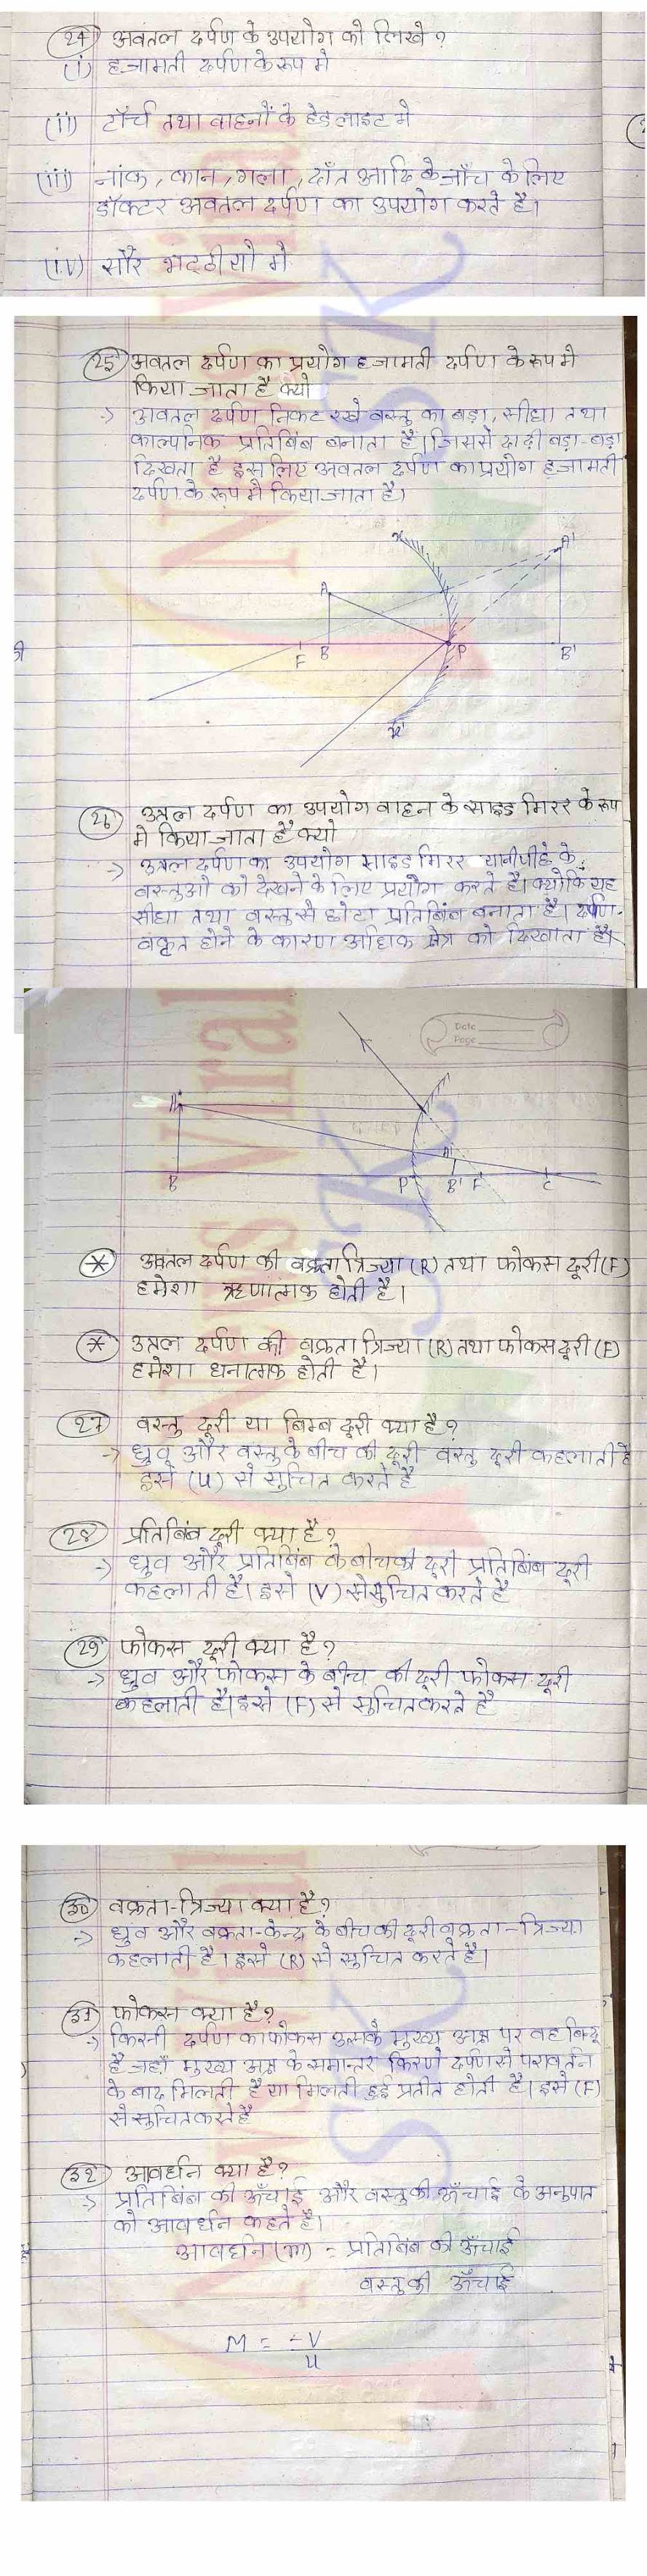 24 अवतल दर्पण के उपयोग को लिखे ?
(i) हजामती दर्पण के रूप मे
(ii) टॉर्च तथा वाहनों के हेडलाइट मे
(iii) नांक, कान, गला, दाँत आदि के जाँच के लिए
डॉक्टर अवतल दर्पण का उपयोग करते है।
(iv) सौर भट्ठीयो मे
25 अवतल दर्पण का प्रयोग हजामती दर्पण के रूप मे
किया जाता है क्यो
-> अवतल दर्पण निकट रखे वस्तु का बड़ा, सीधा तथा
काल्पनिक प्रतिबिंब बनाता है। जिससे दाढ़ी बड़ा-बड़ा
दिखता है इसलिए अवतल दर्पण का प्रयोग हजामती
दर्पण के रूप मे किया जाता है।
A'
A
F B P B'
26 उत्तल दर्पण का उपयोग वाहन के साइड मिरर के रूप
मे किया जाता है क्यो
-> उत्तल दर्पण का उपयोग साइड मिरर यानी पीछे के
वस्तुओ को देखने के लिए प्रयोग करते है। क्योकि यह
सीधा तथा वस्तु से छोटा प्रतिबिंब बनाता है। दर्पण
वकृत होने के कारण अधिक क्षेत्र को दिखाता है।
Date
Page
A'
B P B' F C
* अवतल दर्पण की वक्रता त्रिज्या (R) तथा फोकस दूरी (F)
हमेशा ऋणात्मक होती है।
* उत्तल दर्पण की वक्रता त्रिज्या (R) तथा फोकस दूरी (F)
हमेशा धनात्मक होती है।
27 वस्तु दूरी या बिम्ब दूरी क्या है ?
-> ध्रुव और वस्तु के बीच की दूरी वस्तु दूरी कहलाती है
इसे (u) से सुचित करते है
28 प्रतिबिंब दूरी क्या है ?
-> ध्रुव और प्रतिबिंब के बीच की दूरी प्रतिबिंब दूरी
कहलाती है। इसे (V) से सुचित करते है
29 फोकस दूरी क्या है ?
-> ध्रुव और फोकस के बीच की दूरी फोकस दूरी
कहलाती है। इसे (F) से सुचित करते है
30 वक्रता-त्रिज्या क्या है ?
-> ध्रुव और वक्रता-केन्द्र के बीच की दूरी वक्रता-त्रिज्या
कहलाती है। इसे (R) से सुचित करते है।
31 फोकस क्या है ?
-> किसी दर्पण का फोकस उसके मुख्य अक्ष पर वह बिन्दु
है जहाँ मुख्य अक्ष के समान्तर किरणे दर्पण से परावर्तन
के बाद मिलती है या मिलती हुई प्रतीत होती है। इसे (F)
से सुचित करते है
32 आवर्धन क्या है ?
-> प्रतिबिंब की ऊँचाई और वस्तु की ऊँचाई के अनुपात
को आवर्धन कहते है।
आवर्धन (m) = प्रतिबिंब की ऊँचाई
वस्तु की ऊँचाई
M = -V
u